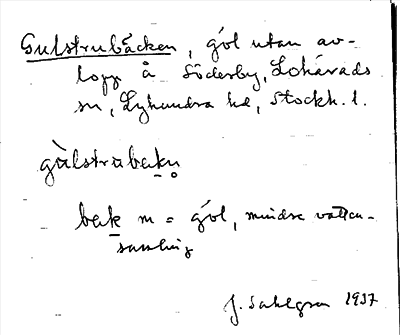 Gulstrubäcken, göl utan av-
lopp å Söderby, Lohärads
sn, Lyhundra hd, Stockh. l.
gùlstrubekn̥
bek m = göl, mindre vatten-
samling
J. Sahlgren 1937